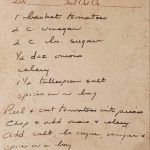 1 basket tomatoes
2 c. vinegar
2 c. br. sugar
1/2 doz onions
celery
1/2 tablespoon salt
spice in a bag
Peel & cut tomatoes into pieces
Chop & add onions & celery
Add salt, br. sugar, vinegar &
spice in a bag